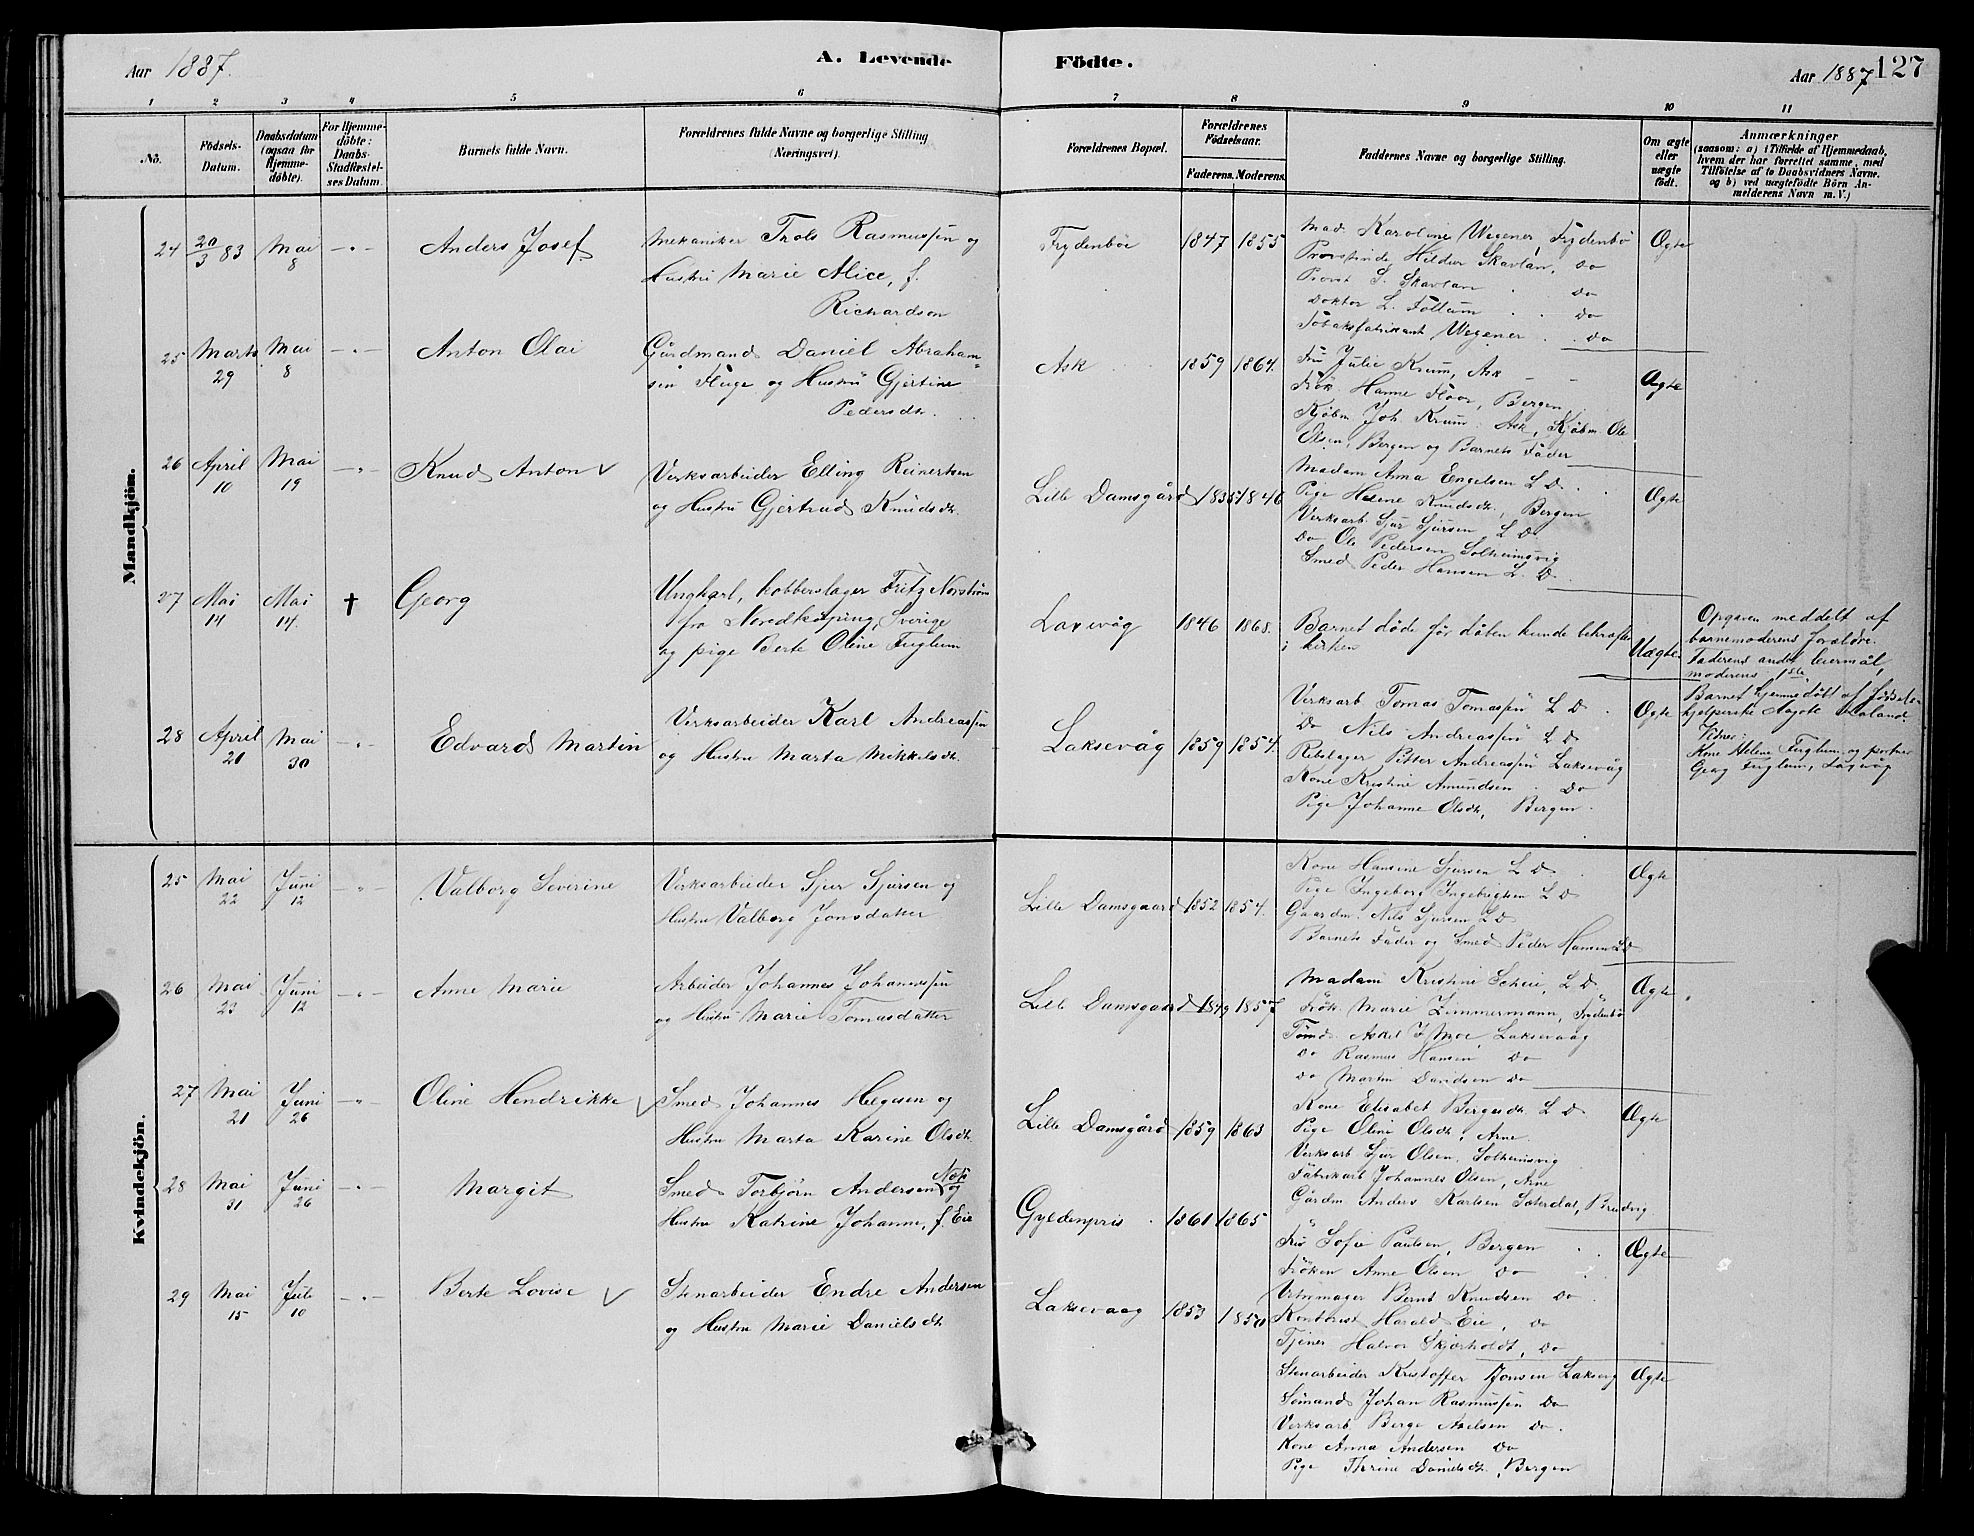 Aar 1887.
A. Levende
Födte.
Aar 1887
127
1 2 3 4 5 6 7 8 9 10 11
No.
Födsels-Datum.
Daabsdatum (ogsaa for Hjemme-döbte).
For Hjemme-döbte: Daabs-Stadfæstel-ses Datum.
Barnets fulde Navn.
Forældrenes fulde Navne og borgerlige Stilling (Næringsvei).
Forældrenes Bopæl.
Forældrenes Födselsaar.
Faderens. Moderens.
Faddernes Navne og borgerlige Stilling.
Om ægte eller uægte födt.
Anmærkninger
(saasom: a) i Tilfælde af Hjemmedaab,
hvem der har forrettet samme, med
Tilföielse af to Daabsvidners Navne,
og b) ved uægtefödte Börn An-
melderens Navn m. V.)
Mandkjön.
24 20/3 83 Mai 8 -"- Anders Josef
Mekaniker Trols Rasmussen og
Hustru Marie Alice, f.
Richardson
Frydenböe 1847 1855
Mad. Karoline Wegener, Frydenbö
Provstinde Hildur Skavlan, Do
Provst S. Skavlan Do
Doktor L. Follum Do
Tobaksfabrikant Wegener Do
Ægte
25 Marts 29 Mai 8 -"- Anton Olai
Gårdmand Daniel Abraham-
sen Fluge og Hustru Gjertine
Pedersdtr.
Ask 1859 1864.
Fru Julie Krum, Ask
Frök. Hanne Floor, Bergen
Kjöbm. Joh. Krum, Ask, Kjöbm. Ole
Olsen, Bergen og Barnets Fader
Ægte
26 April 10 Mai 19 -"- Knud Anton
Verksarbeider Elling Reinertsen
og Hustru Gjertrud Knudsdtr.
Lille Damsgård 1835 1846
Madam Anna Engelsen L D.
Pige Helene Knudsdtr., Bergen
Verksarb. Sjur Sjursen L D
Do Ole Pedersen Solheimsvig
Smed Peder Hansen L. D.
Ægte
27 Mai 14 Mai 14. † Georg
Ungkarl, kobberslager Fritz Norström
fra Nordköping, Sverige
og pige Berte Oline Fuglum
Laxevåg 1846 1868.
Barnet döde för dåben kunde bekræftes
i kirken
Uægte
Opgaven meddelt af
barnemoderens forældre.
Faderens andet leiermål,
moderens 1ste
Barnet hjemmedöbt af födsels-
hjelperske Aagote Haaland
Vitner:
Kone Helene Fuglum og portner
Georg Fuglum, Laxevåg
28 April 21 Mai 30 -"- Edvard Martin
Verksarbeider Karl Andreassen
og Hustru Marta Mikkelsdtr.
Laksevåg 1859 1854.
Verksarb Tomas Tomassen L D
Do Nils Andreassen L D
Rebslager Pitter Andreassen Laksevåg
Kone Kristine Amundsen Do
Pige Johanne Olsdtr, Bergen
Ægte
Kvindekjön.
25 Mai 22 Juni 12 -"- Valborg Severine
Verksarbeider Sjur Sjursen og
Hustru Valborg Jonsdatter
Lille Damsgaard 1852 1854.
Kone Hansine Sjursen L D
Pige Ingeborg Ingebrigtsen L D
Gaardm. Nils Sjursen L D
Barnets Fader og Smed Peder Hansen L D
Ægte
26 Mai 23 Juni 12 -"- Anne Marie
Arbeider Johannes Johannessen
og Hustru Marie Tomasdatter
Lille Damsgaard 1849 1857
Madam Kristine Scheie, L D.
Frök. Marie Zimmermann, Frydenbö
Tömd. Askel J Moe Laksevaag
Do Rasmus Hansen Do
Do Martin Davidsen Do
Ægte
27 Mai 21 Juni 26 -"- Oline Hendrikke
Smed Johannes Helgesen og
Hustru Marta Karine Olsdtr.
Lille Damsgård 1859 1863
Kone Elisabet Bergesdtr. L D
Pige Oline Olsdtr., Arne
Verksarb Sjur Olsen, Solheimsvig
Fabrikarb Johannes Olsen, Arne
Gårdm Anders Karlsen Sæterdal, Bruvig
Ægte
28 Mai 31 Juni 26 -"- Margit
Smed Torbjörn Andersen Næss og
Hustru Katrine Johanne, f. Eie
Gyldenpris 1861 1865
Fru Sofie Paulsen, Bergen
Fröken Anne Olsen Do
Urmager Bernt Knudsen Do
Kontorist Harald Eie, Do
Tjener Halvor Skjerholdt, Do
Ægte
29 Mai 15 Juli 10 -"- Berte Lovise
Stenarbeider Endre Andersen
og Hustru Marie Danielsdtr
Laksevaag 1853 1850
Stenarbeider Kristoffer Jonsen Laksevg
Sömand Johan Rasmussen Do
Verksarb Berge Axelsen Do.
Kone Anna Andersen Do
Pige Therine Danielsdtr., Bergen
Ægte